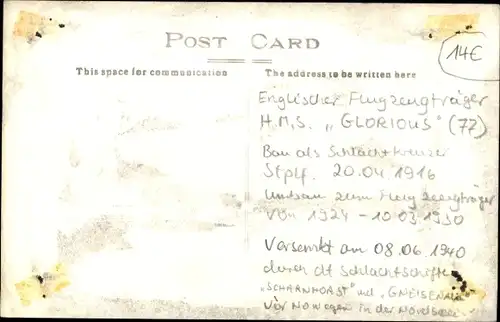 14€
POST CARD
This space for communication
The address to be written here
Englischer Flugzeugträger
H.M.S. „GLORIOUS" (77)
Bau als Schlachtkreuzer
Stplf. 20.04 1916
Umbau zum Flugzeugträger
von 1924 - 10 03 1930
Versenkt am 08.06.1940
durch dt Schlachtschiffe
„SCHARNHORST" und „GNEISENAU"
vor Norwegen in der Nordsee